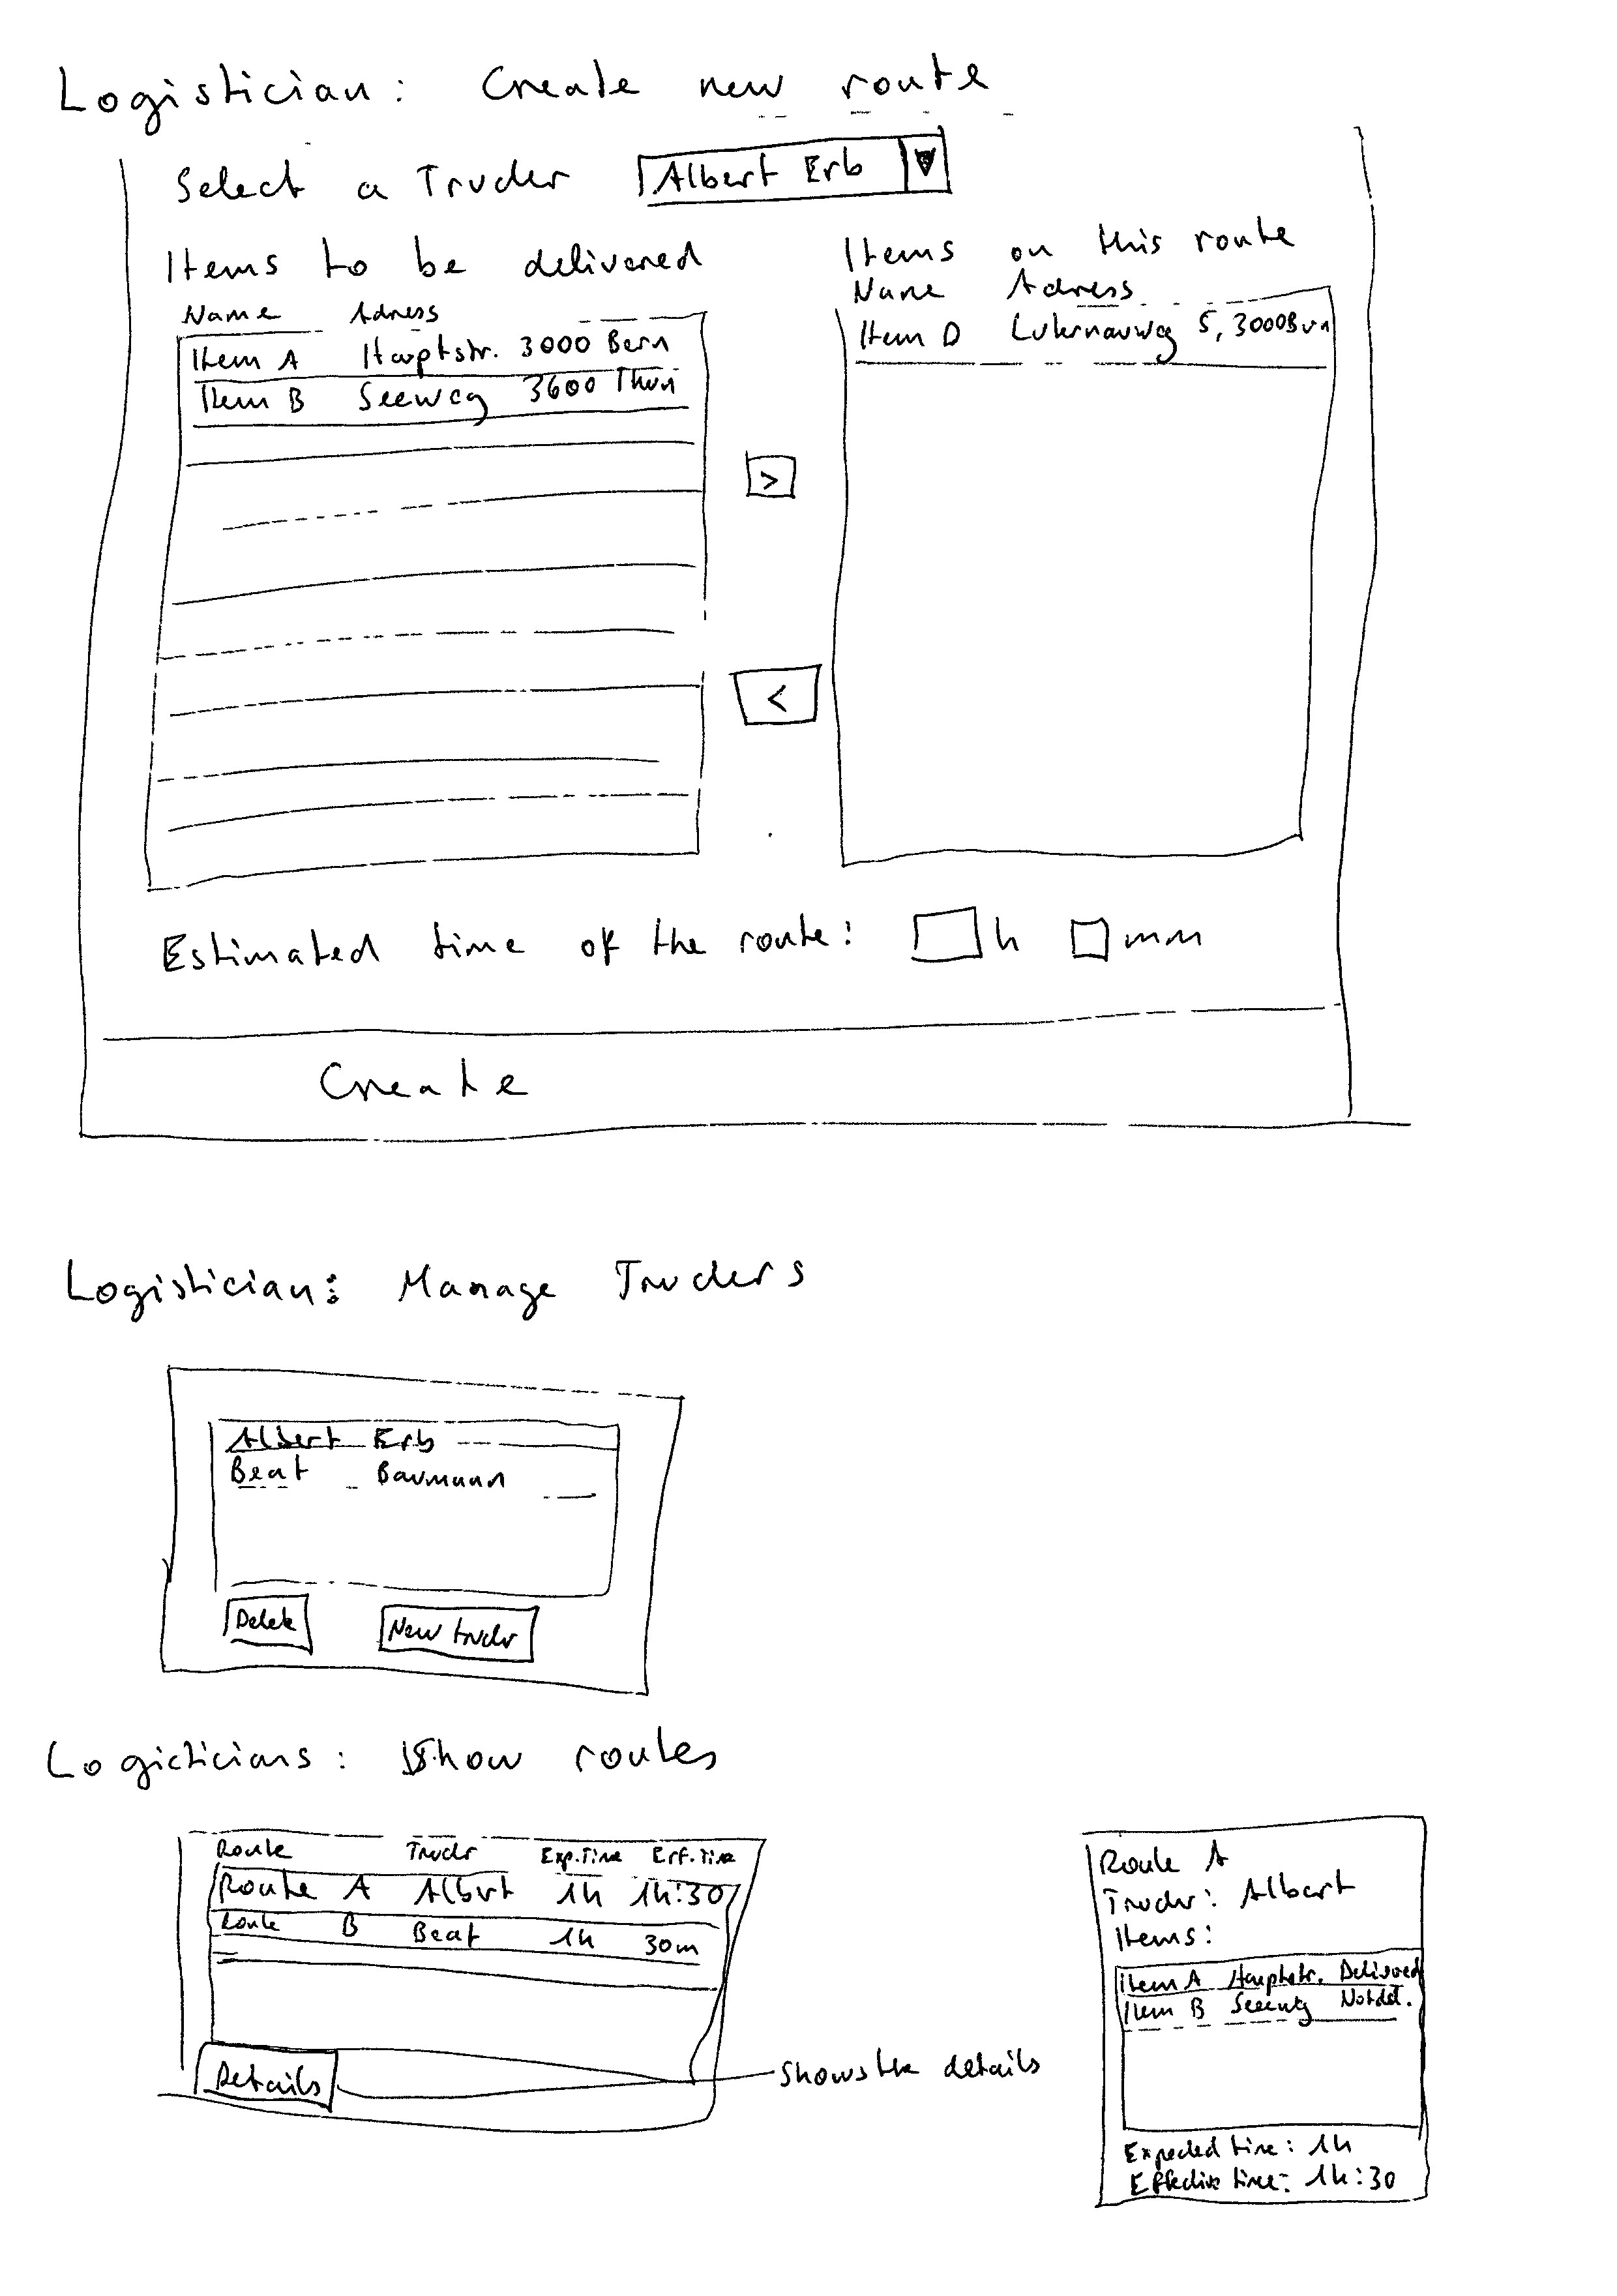 Logistician: Create new route
Select a Trucker Albert Erb
Items to be delivered
Name Adress
Item A Hauptstr. 3000 Bern
Item B Seeweg 3600 Thun
>
<
Items on this route
Name Adress
Item D 5, 3000 Bern
Estimated time of the route: h mm
Create
Logistician: Manage Truckers
Albert Erb
Beat Baumann
Delete New trucker
Logicticians: Show routes
Route Trucker Exp. Time Eff. Time
Route A Albert 1h 1h:30
Route B Beat 1h 30m
Details
Shows the details
Route A
Trucker: Albert
Items:
Item A Hauptstr. Delivered
Item B Seeweg Not del.
Expected time: 1h
Effective time: 1h:30